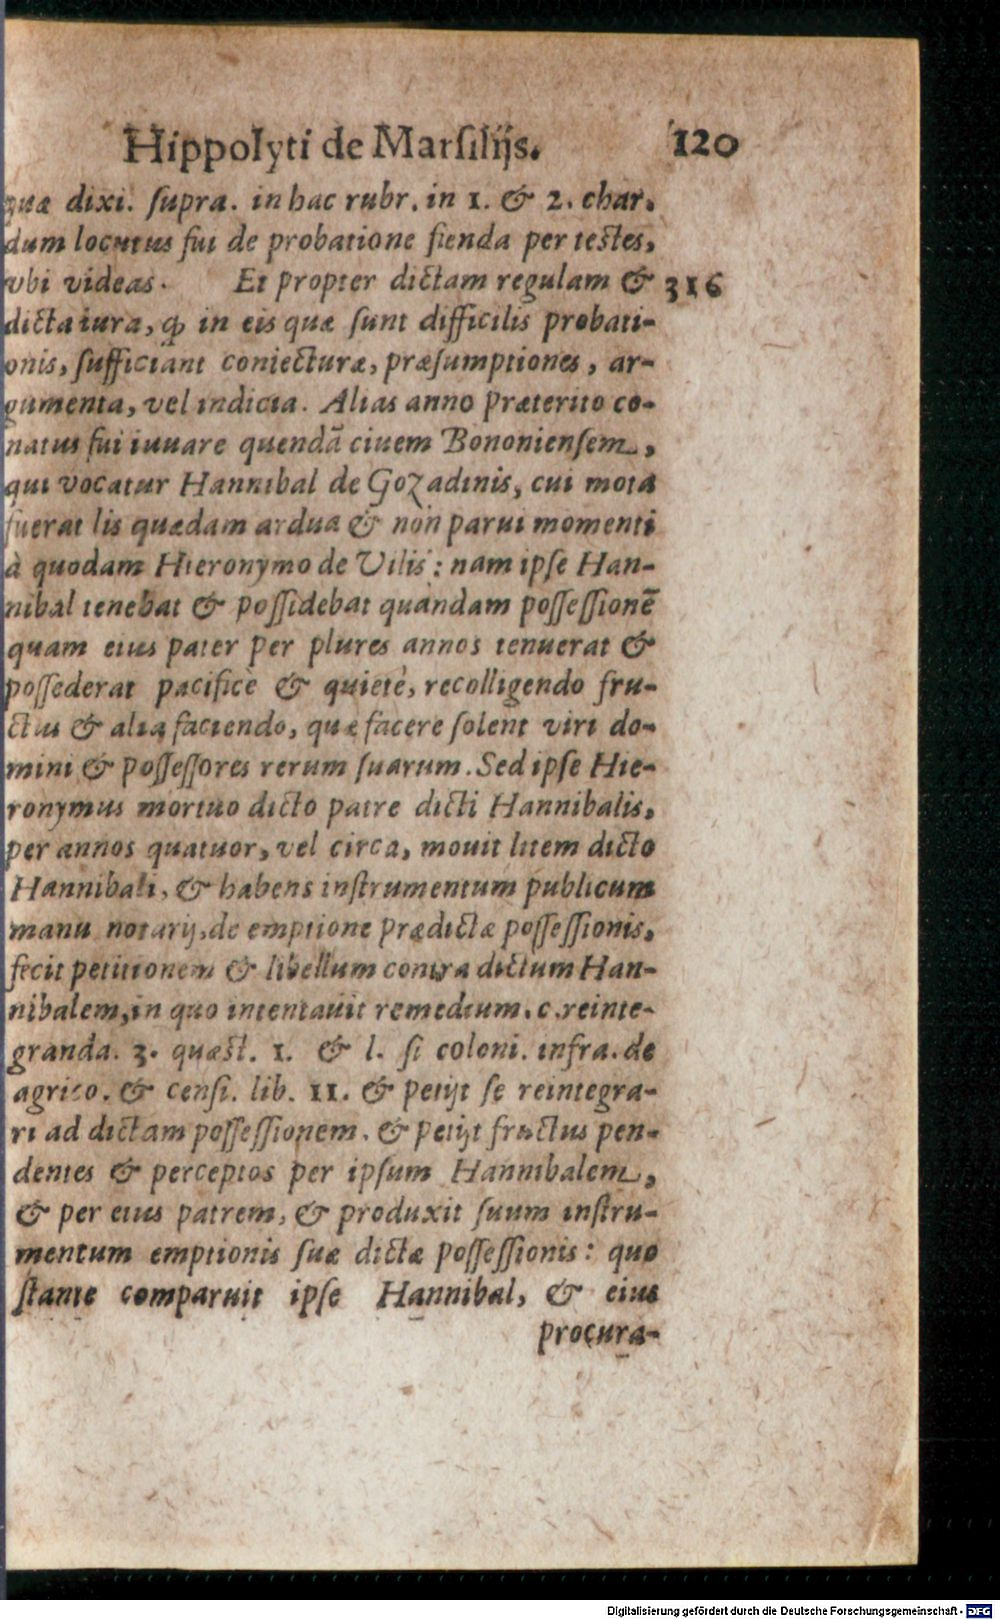 Hippolyti de Marsilijs. 120
quæ dixi. supra. in hac rubr. in 1. & 2. char.
dum locutus fui de probatione fienda per testes,
vbi videas. Et propter dictam regulam & 316
dicta iura, ꝙ in eis quæ sunt difficilis probati-
onis, sufficiant coniecturæ, præsumptiones, ar-
gumenta, vel indicia. Alias anno præterito co-
natus fui iuuare quendã ciuem Bononiensem,
qui vocatur Hannibal de Gozadinis, cui mota
fuerat lis quædam ardua & non parui momenti
à quodam Hieronymo de Vilis: nam ipse Han-
nibal tenebat & possidebat quandam possessionẽ
quam eius pater per plures annos tenuerat &
possederat pacificè & quietè, recolligendo fru-
ctus & alia faciendo, quæ facere solent viri do-
mini & possessores rerum suarum. Sed ipse Hie-
ronymus mortuo dicto patre dicti Hannibalis,
per annos quatuor, vel circa, mouit litem dicto
Hannibali, & habens instrumentum publicum
manu notarij, de emptione prædictæ possessionis,
fecit petitionem & libellum contra dictum Han-
nibalem, in quo intentauit remedium. c. reinte-
granda. 3. quæst. 1. & l. si coloni. infra. de
agrico. & censi. lib. 11. & petijt se reintegra-
ri ad dictam possessionem. & petijt fructus pen-
dentes & perceptos per ipsum Hannibalem,
& per eius patrem, & produxit suum instru-
mentum emptionis suæ dictæ possessionis: quo
stante comparuit ipse Hannibal, & eius
procura-
Digitalisierung gefördert durch die Deutsche Forschungsgemeinschaft - DFG